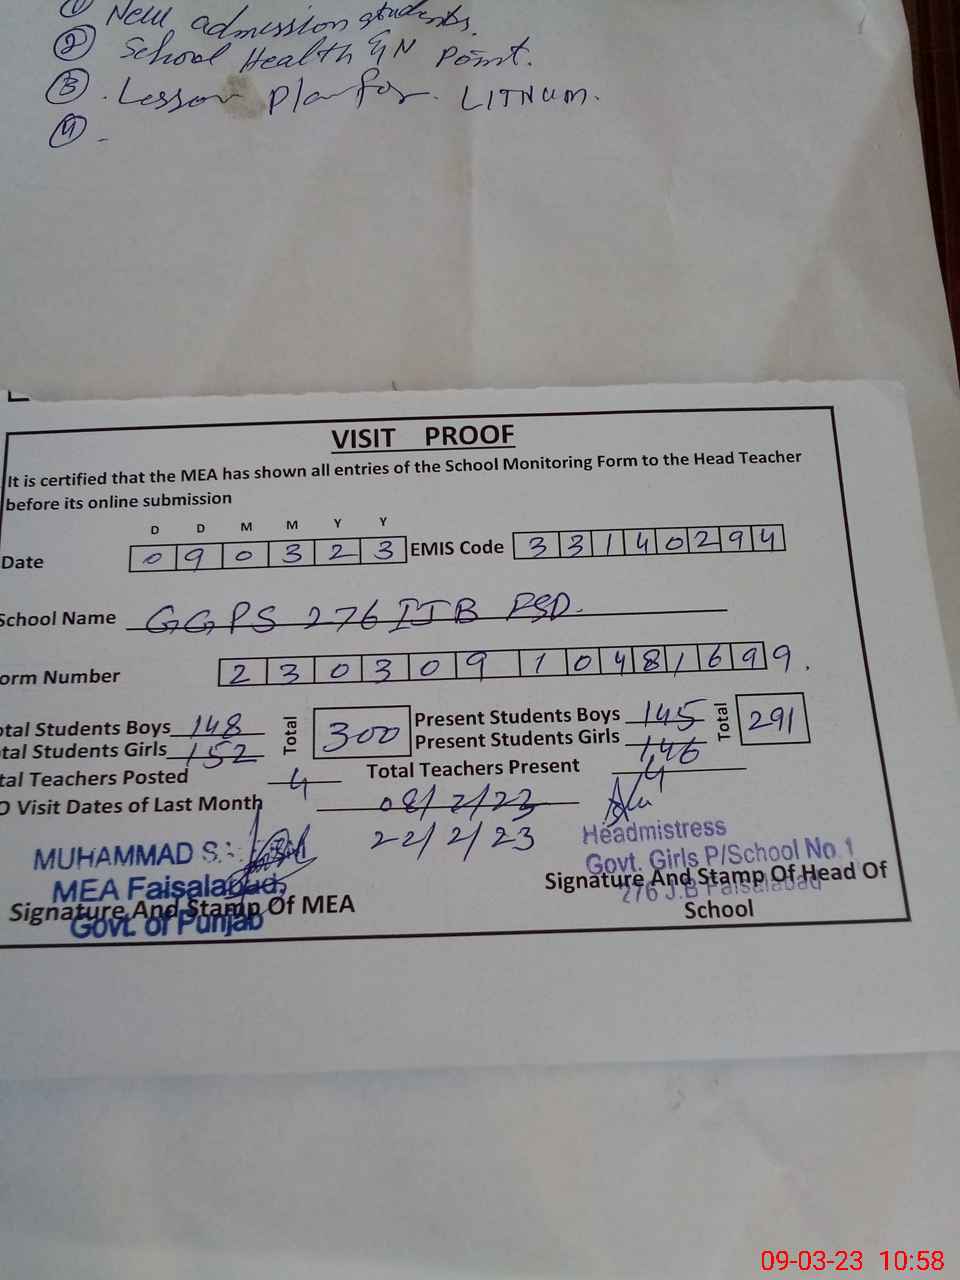 ① New admission students.
② School Health GN Point.
③. Lesson plan for. LITNUM.
④ -
VISIT PROOF
It is certified that the MEA has shown all entries of the School Monitoring Form to the Head Teacher
before its online submission
D D M M Y Y
Date 0 9 0 3 2 3 EMIS Code 3 3 1 4 0 2 9 4
School Name GGPS 276 JB FSD.
orm Number 2 3 0 3 0 9 1 0 4 8 1 6 9 9.
otal Students Boys 148 Total 300 Present Students Boys 145 Total 291
tal Students Girls 152 Present Students Girls 146
tal Teachers Posted 4 Total Teachers Present 4
O Visit Dates of Last Month 08/2/23
22/2/23
MUHAMMAD
MEA Faisalabad,
Signature And Stamp Of MEA
Govt. of Punjab
Headmistress
Govt. Girls P/School No.1
Signature And Stamp Of Head Of
276 J.B Faisalabad
School
09-03-23 10:58